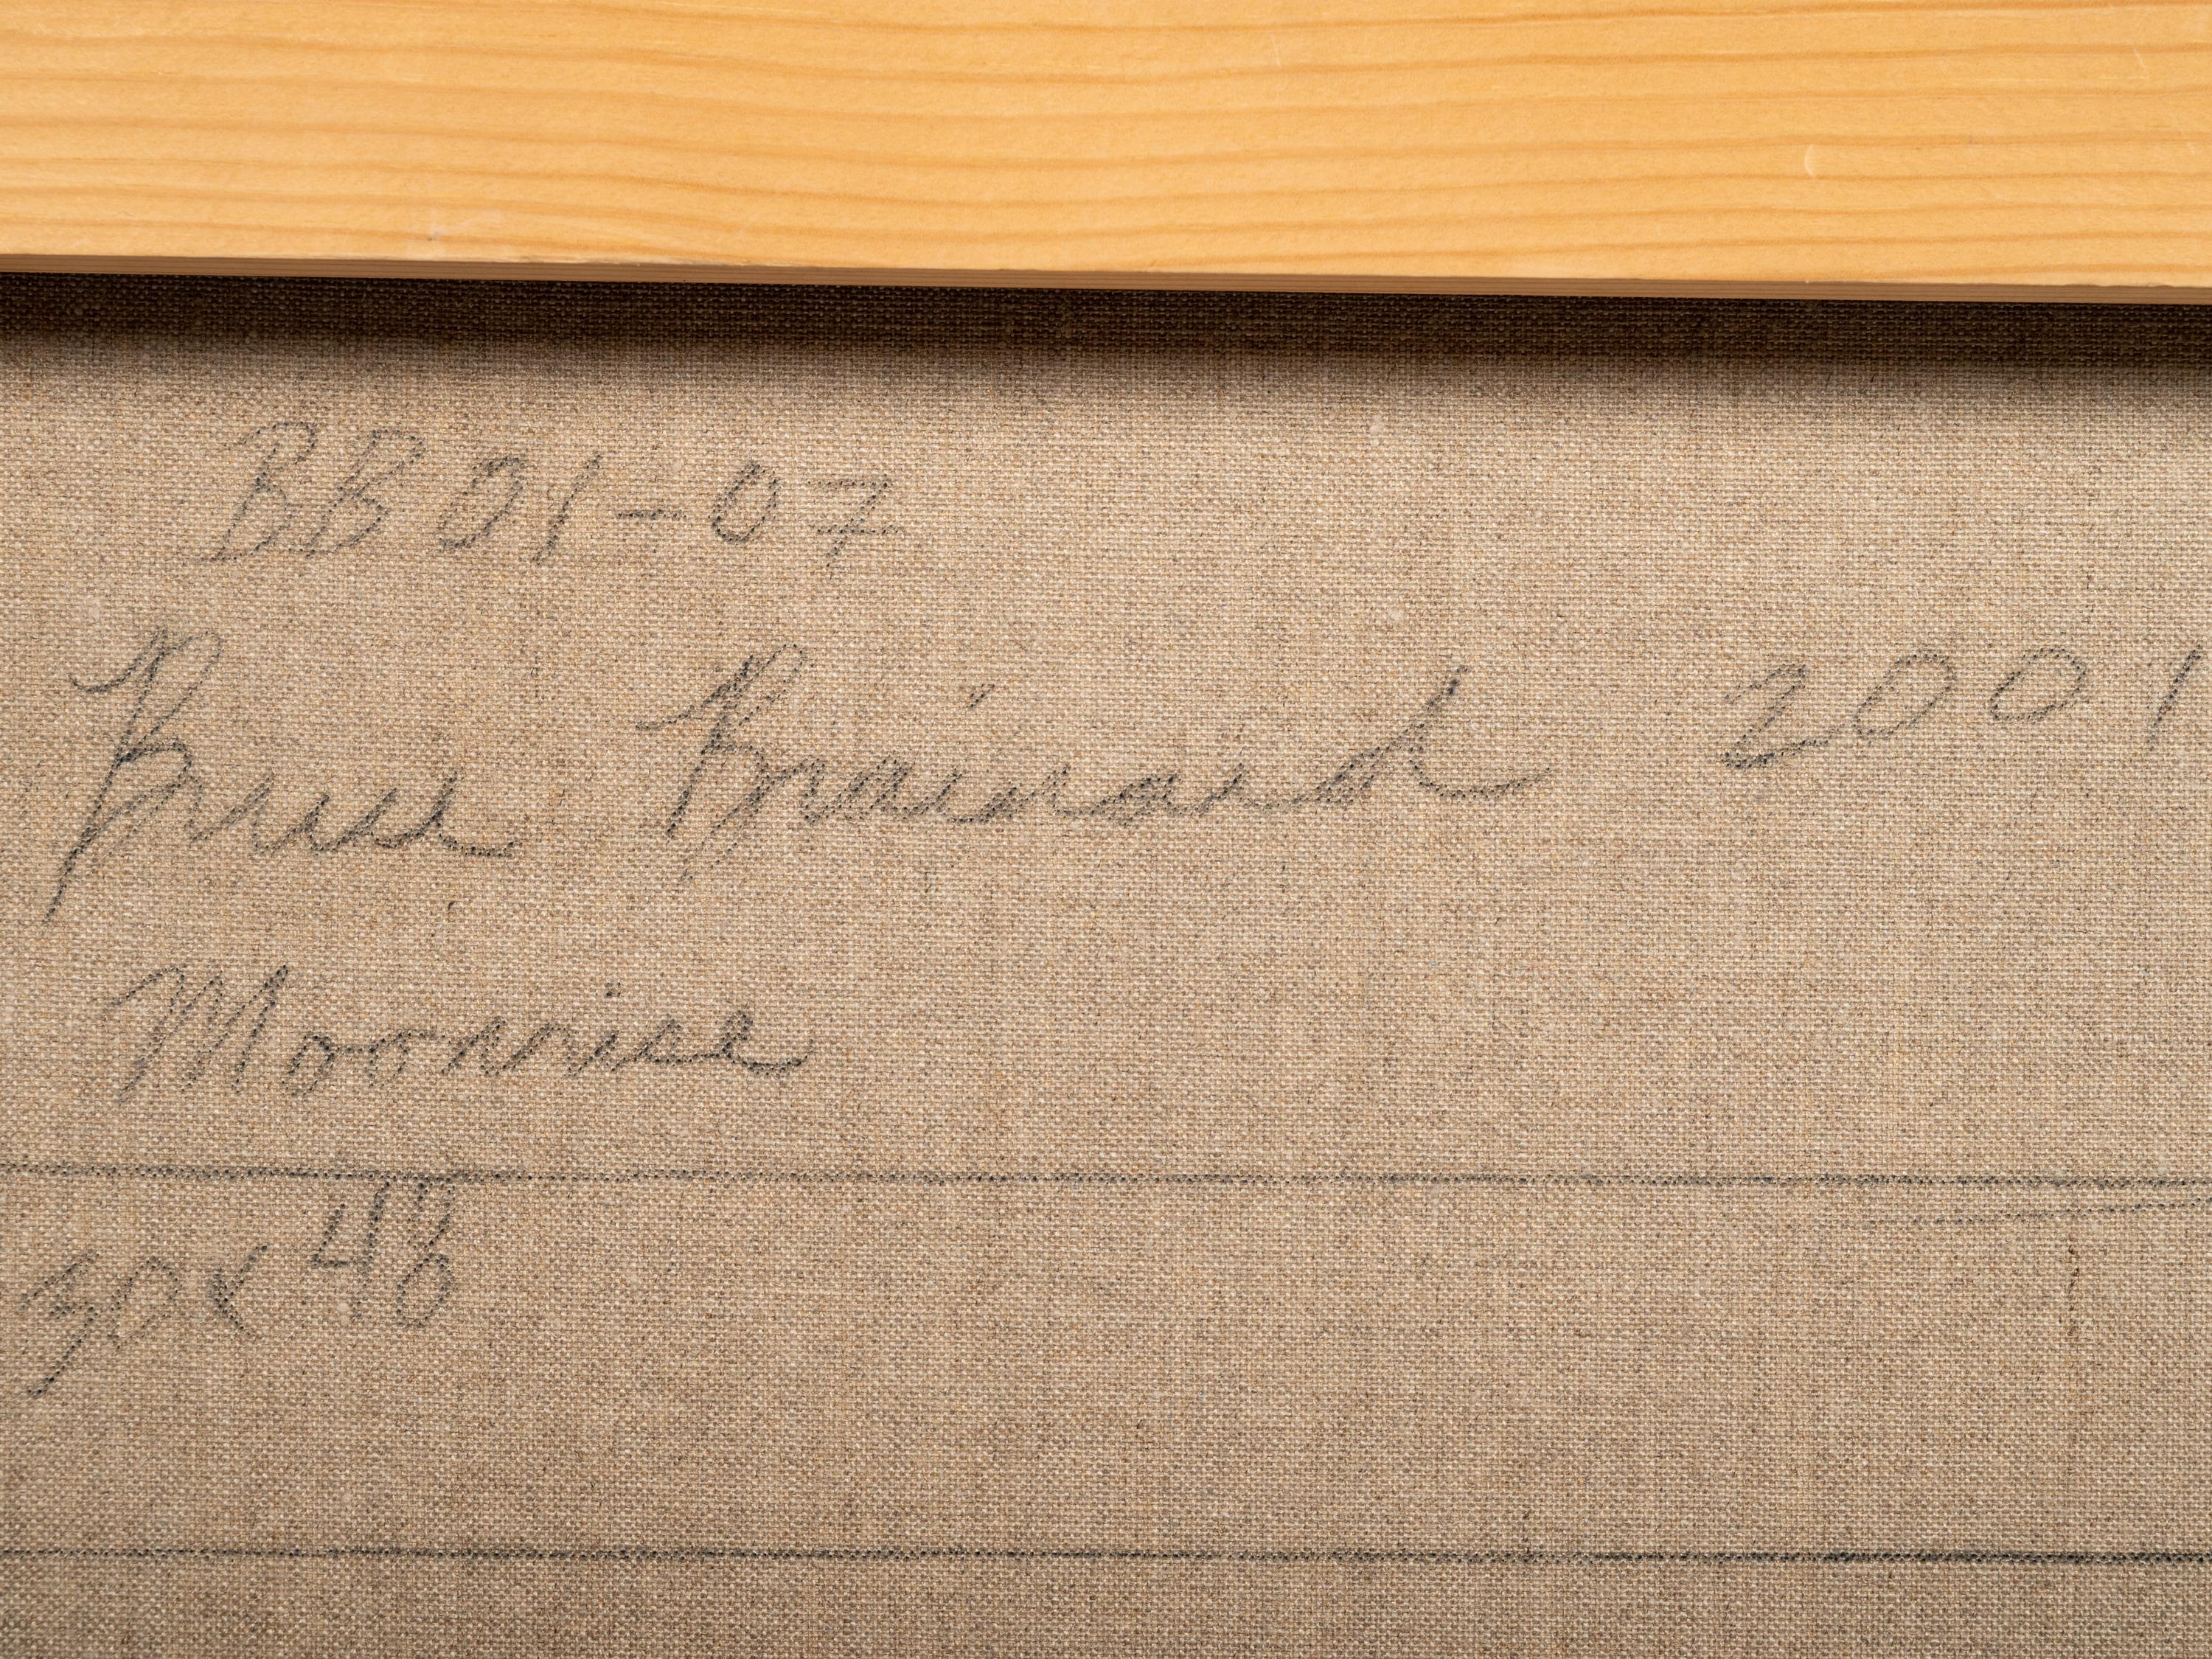 BB 01-07
Bruce Brainard 2001
Moonrise
30 x 46